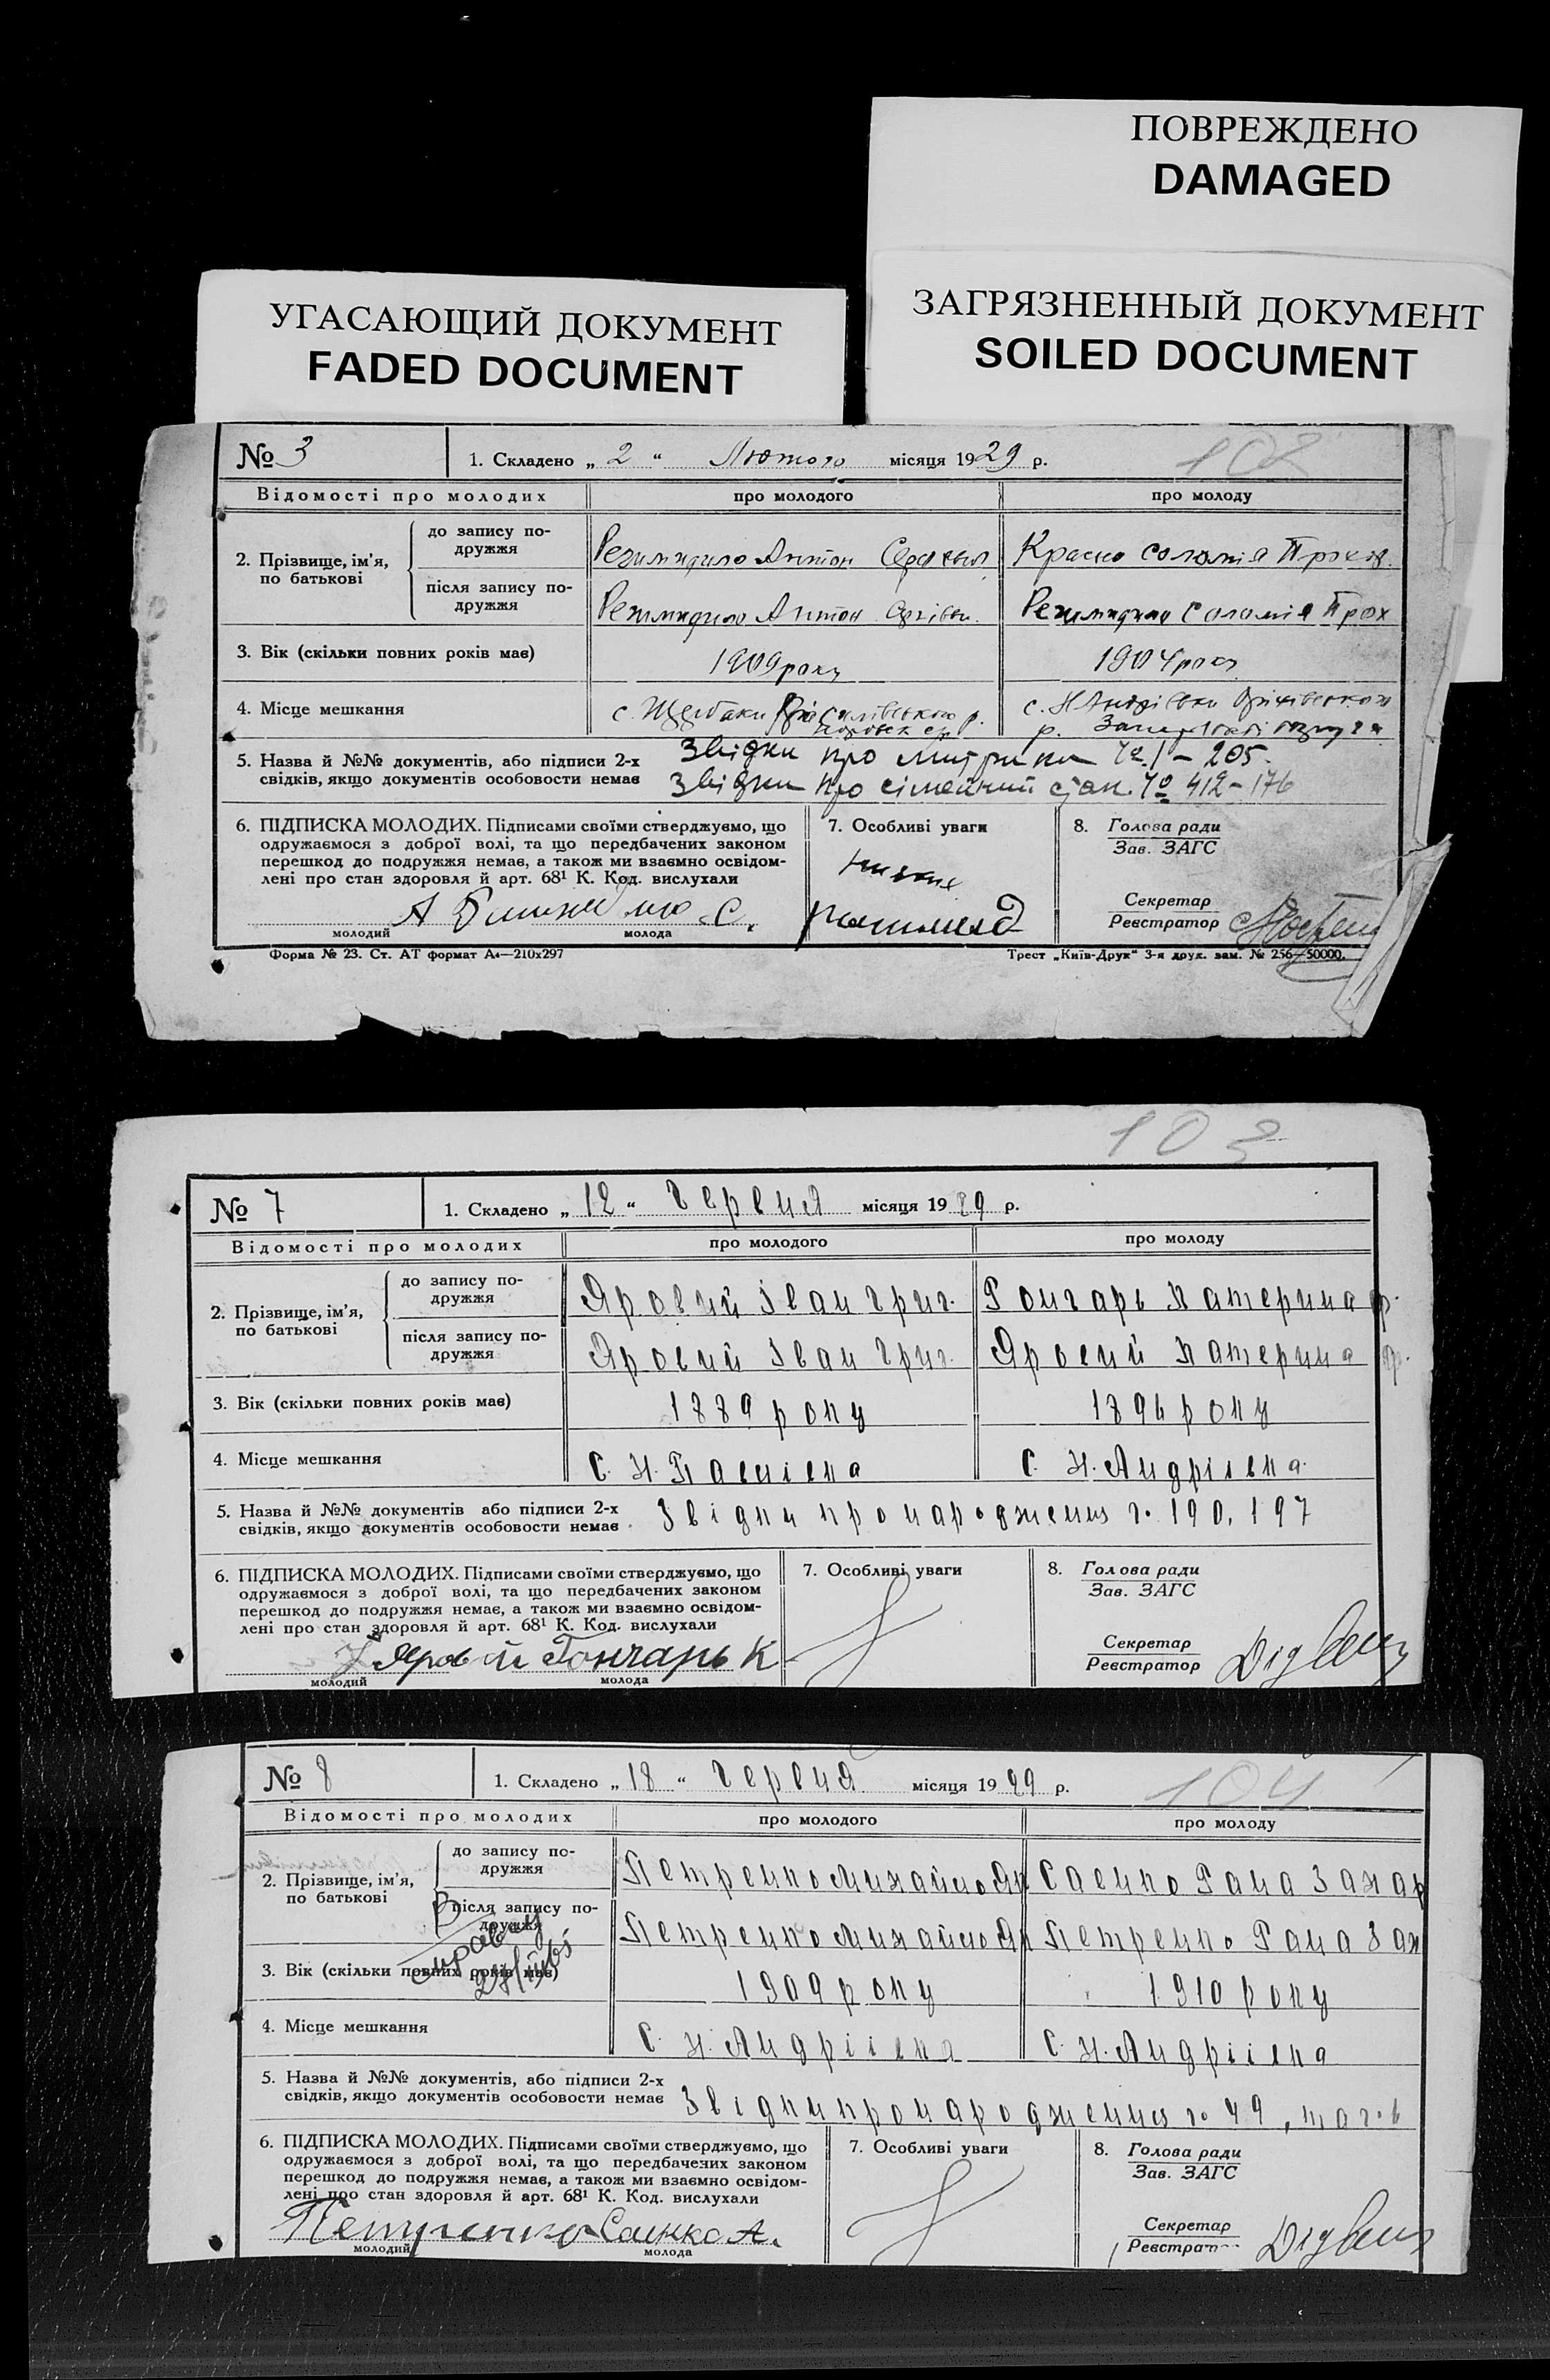 ПОВРЕЖДЕНО
DAMAGED
ЗАГРЯЗНЕННЫЙ ДОКУМЕНТ
SOILED DOCUMENT
УГАСАЮЩИЙ ДОКУМЕНТ
FADED DOCUMENT
№ 3 1. Складено „ 2 “ Лютого місяця 1929 р. 102
Відомості про молодих про молодого про молоду
2. Прізвище, ім'я, по батькові
до запису по-дружжя Антон Красно Соломія Проков.
після запису по-дружжя Антон Соломія Прох
3. Вік (скільки повних років має) 1909 року 1904 року
4. Місце мешкання с. Щербаки р. с. Н Андріївки Оріхівського
р. Запорізької округи
5. Назва й №№ документів, або підписи 2-х Звідки про метрики № 1 – 205.
свідків, якщо документів особовости немає Звідки про сімейний стан. № 412–176
6. ПІДПИСКА МОЛОДИХ. Підписами своїми стверджуємо, що 7. Особливі уваги 8. Голова ради
одружаємося з доброї волі, та що передбачених законом Зав. ЗАГС
перешкод до подружжя немає, а також ми взаємно освідом-
лені про стан здоровля й арт. 68¹ К. Код. вислухали Секретар
Реєстратор
молодий молода
Форма № 23. Ст. АТ формат А4—210x297 Трест „Київ-Друк“ 3-я друк. зам. № 256—50000.
103
№ 7 1. Складено „ 12 “ Червня місяця 1929 р.
Відомості про молодих про молодого про молоду
2. Прізвище, ім'я, по батькові
до запису по-дружжя Яровий Іван Григ. Гончарь Катерина Ф.
після запису по-дружжя Яровий Іван Григ. Яровий Катерина Ф.
3. Вік (скільки повних років має) 1889 року 1894 року
4. Місце мешкання С. Н. Павлівка С. Н. Андріівка
5. Назва й №№ документів або підписи 2-х Звідки про народження ч. 190, 197
свідків, якщо документів особовости немає
6. ПІДПИСКА МОЛОДИХ. Підписами своїми стверджуємо, що 7. Особливі уваги 8. Голова ради
одружаємося з доброї волі, та що передбачених законом Зав. ЗАГС
перешкод до подружжя немає, а також ми взаємно освідом-
лені про стан здоровля й арт. 68¹ К. Код. вислухали Секретар
Яровий Гончарь К Реєстратор
молодий молода
№ 8 1. Складено „ 18 “ Червня місяця 1929 р. 104
Відомості про молодих про молодого про молоду
2. Прізвище, ім'я, по батькові
до запису по-дружжя Петренко Михайло Як Саенко Гана Захар
після запису по-дружжя Петренко Михайло Як Петренко Гана Зах
3. Вік (скільки повних років має) 1909 року 1910 року
4. Місце мешкання С. Н. Андріівка С. Н. Андріівка
5. Назва й №№ документів, або підписи 2-х
свідків, якщо документів особовости немає Звідки про народження ч. 49, та ч. 6
6. ПІДПИСКА МОЛОДИХ. Підписами своїми стверджуємо, що 7. Особливі уваги 8. Голова ради
одружаємося з доброї волі, та що передбачених законом Зав. ЗАГС
перешкод до подружжя немає, а також ми взаємно освідом-
лені про стан здоровля й арт. 68¹ К. Код. вислухали Секретар
Петренко Саенко А. Реєстрат
молодий молода